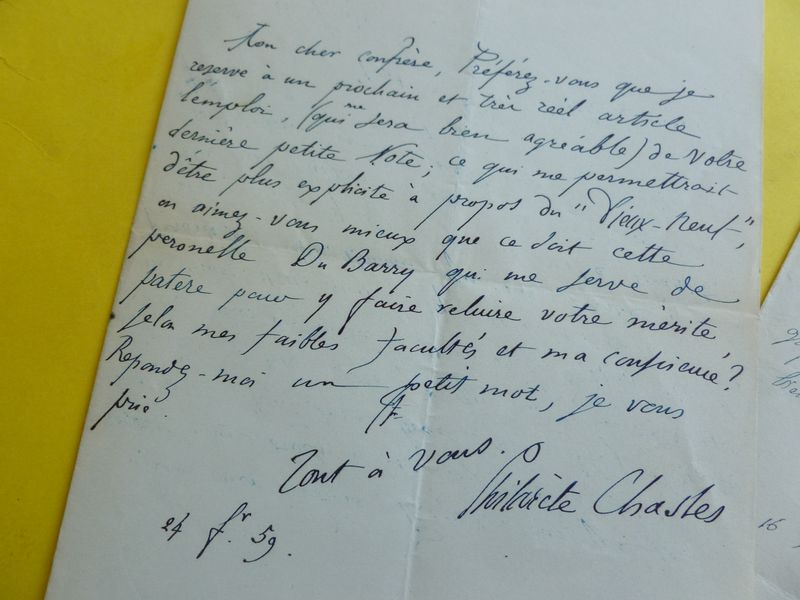 Mon cher confrère, Préférez-vous que je
reserve à un prochain et très réel article
l'emploi, (qui me sera bien agréable) de Votre
dernière petite Note; ce qui me permettrait
d'être plus explicite à propos du "Vieux-neuf,"
ou aimez-vous mieux que ce soit cette
peronelle Du Barry qui me serve de
patère pour y faire reluire votre mérite,
selon mes faibles facultés et ma conscience?
Repondez-moi un petit mot, je vous
prie.
Tout à vous.
Philarète Chasles
24 fr. 59.
16